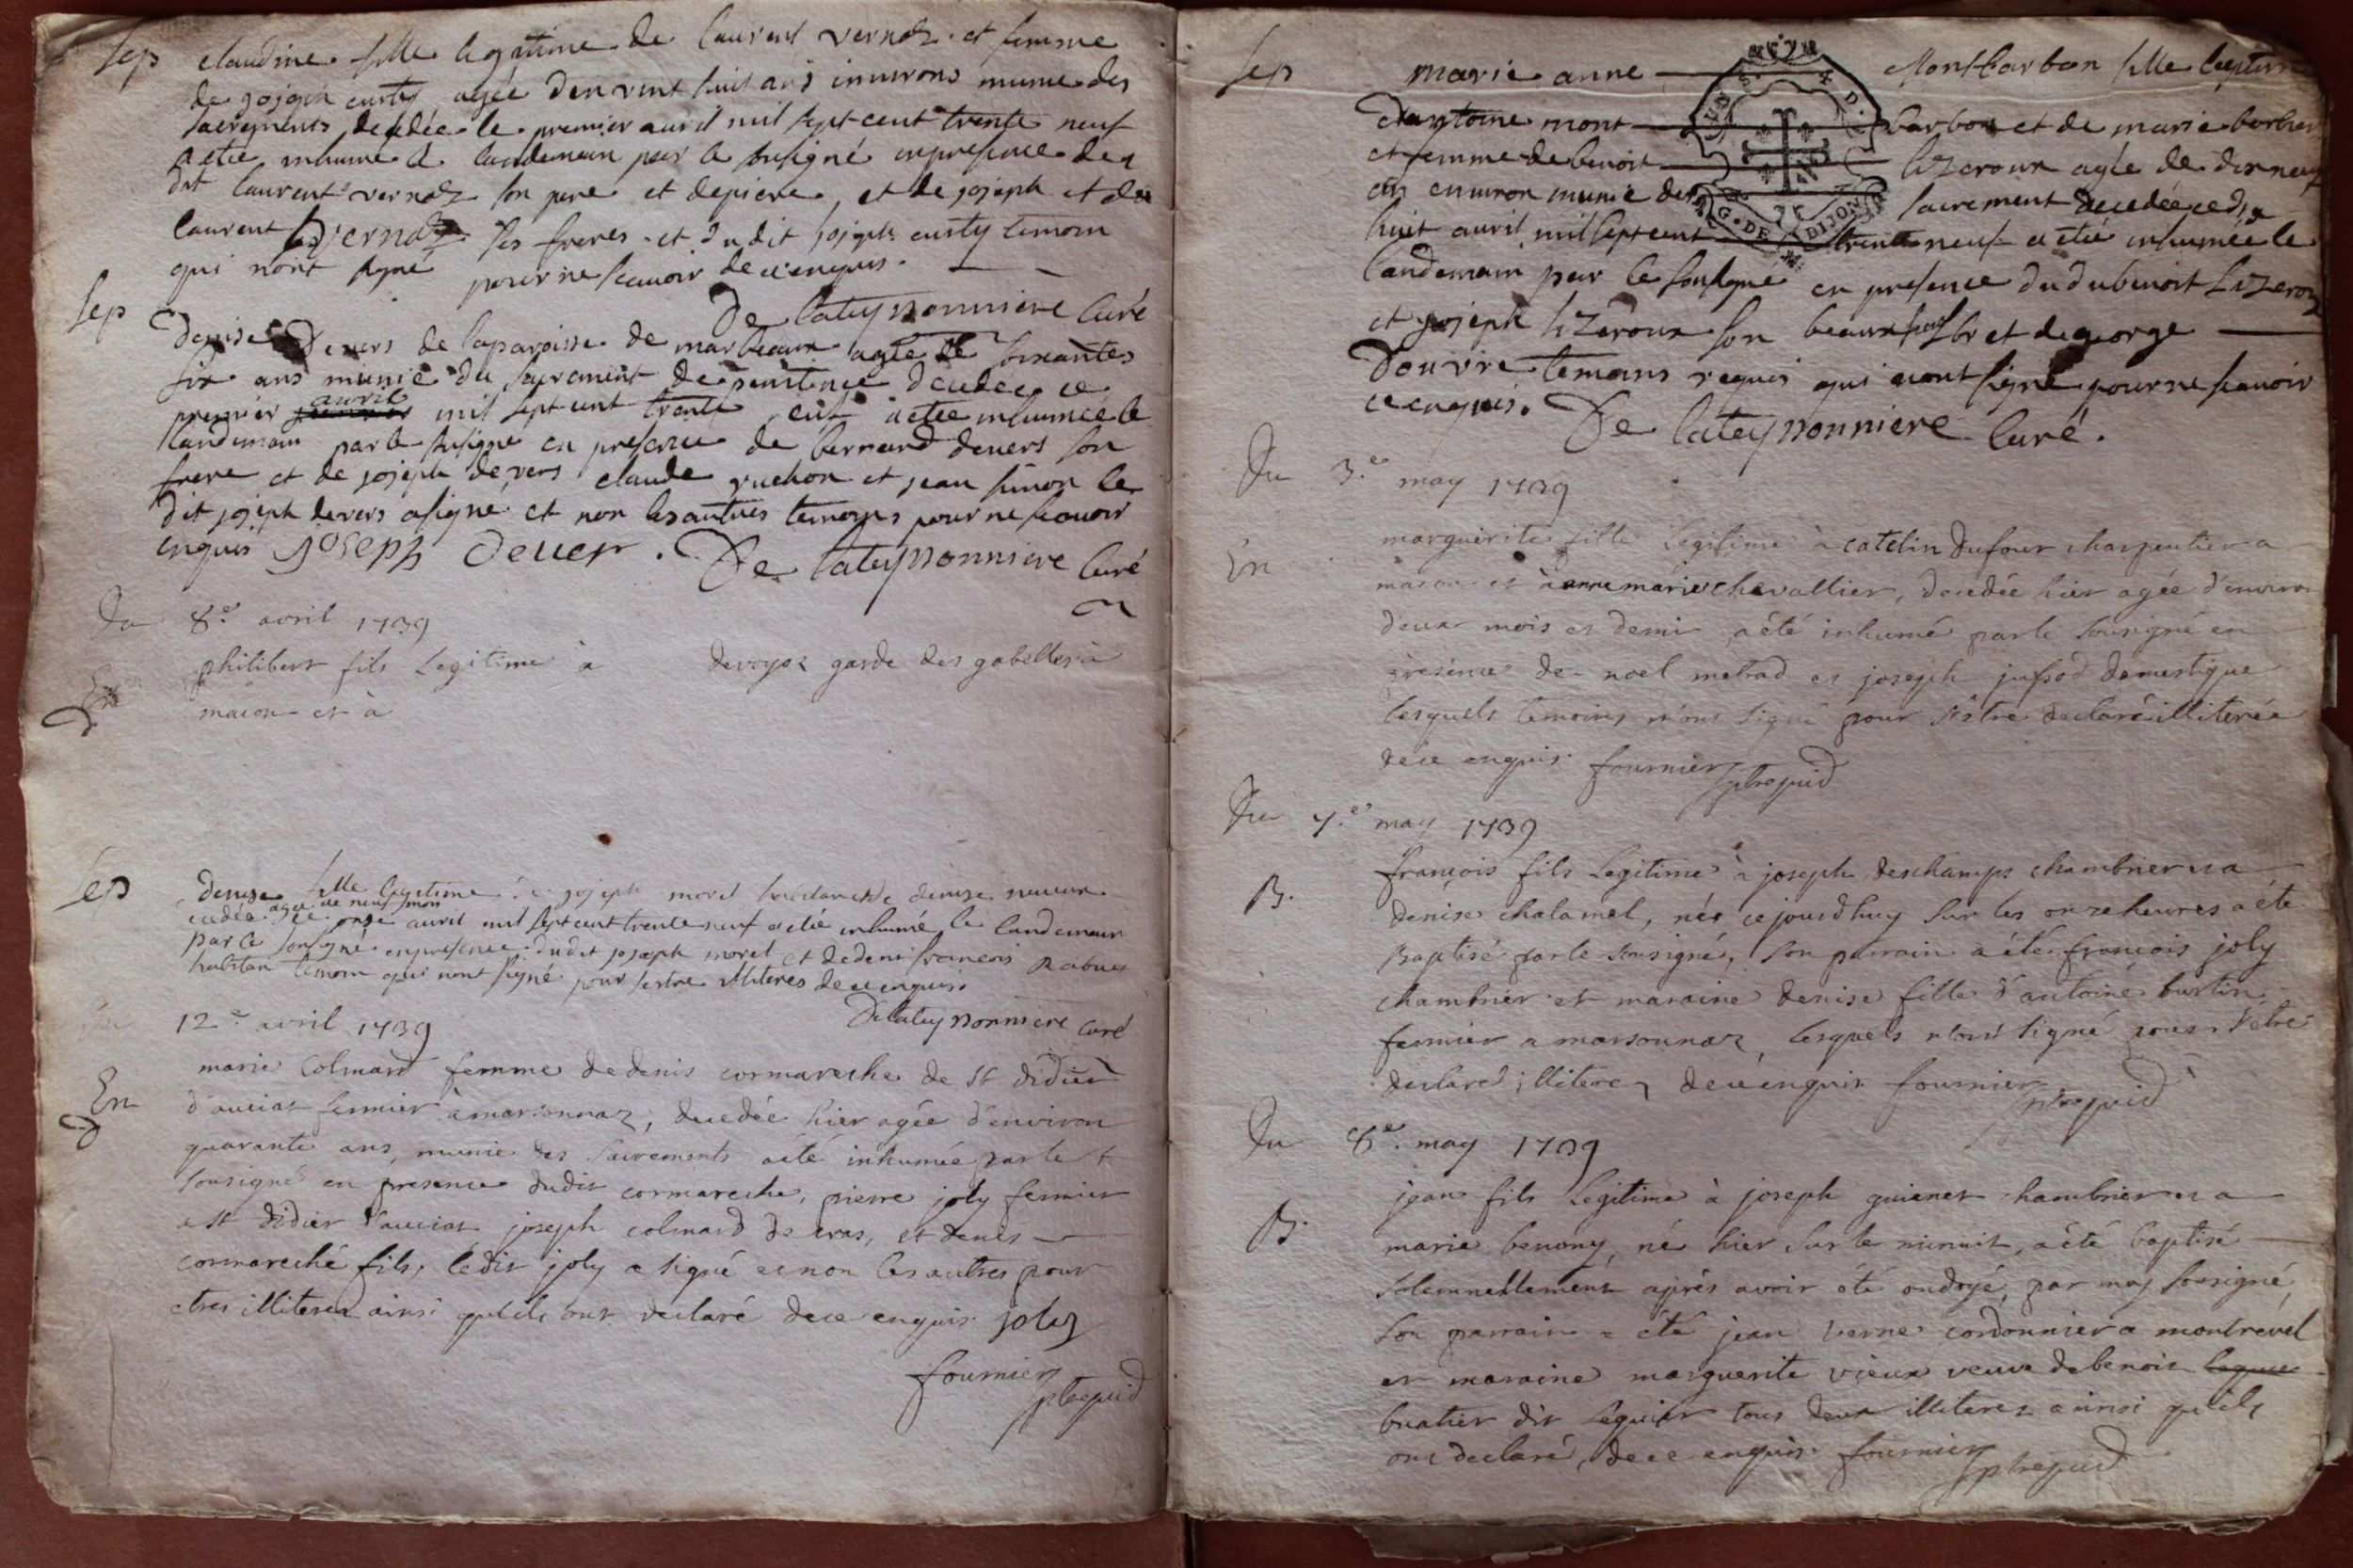 Sep claudine fille legitime de laurent vernoz et femme
de joseph curty agée d'en vint huit ans environs munie des
sacrements decedée le premier auril mil sept cent trente neuf
a etée inhumé le landemain par le susigné en presence du
dit laurent vernoz son pere et de piere, et de joseph et de
laurent vernoz ses freres et du dit joseph curty temoin
qui n'ont signé pour ne scauoir de ce enquis.
De lateyssonniere Curé
Sep
Denise Devers de la paroisse de marboux agée de soixantes
six ans munie du sacrement de penitence decedée ce
premier auril mil sept cent trente neuf a etée inhumée le
landemain par le susigné en presence de bernard devers son
frere et de joseph devers claude ruchon et jean simon le
dit joseph devers a signé et non les autres temoins pour ne scauoir
enquis joseph Deuer. De lateyssonniere Curé
Du 8.e avril 1739
philibert fils legitime à devoyoz garde des gabelles à
En macon et à
Sep Denize fille legitime à joseph morel denize
agée de neuf mois
cedée ce onze auril mil sept cent trente neuf a etée inhumé le landemain
par le sousigné en presence dudit joseph morel et de deni francois
habitan temoin qui n'ont signé pour s'estre illiteres de ce enquis.
De lateyssonniere Curé
Du 12.e avril 1739
marie Colmard femme de denis cormareche de st didier
En d'auciat fermier à marsonnaz, decedée hier agée d'environ
quarante ans, munie des sacrements a été inhumée par le
sousigné en presence dudit cormareche, pierre joly fermier
a st didier d'auciat, joseph colmard de cras, et denis
cormareche fils, ledit joly a signé et non les autres pour
etres illiteres ainsi qu'ils ont declaré de ce enquis. joly
fournier
Sep marie anne Montbarbon fille legitime
d'antoine mont barbon et de marie borbier
et femme de benoit lizeroux agée de dixneuf
an environ munie des sacrement decedée ce dix
huit auril mil sept cent trente neuf a etée inhumée le
landemain par le sousigné en presence dudit benoit Lizeroux
et joseph lizeroux son beaux et de george
Douvre temoins requis qui n'ont signé pour ne scauoir
ce enquis. De lateyssonniere Curé.
Du 3.e may 1739
marguerite fille legitime à catelin dufour charpentier a
En macon et à anne marie chevallier, decedée hier agée d'environ
deux mois et demi a été inhumé par le sousigné en
presence de noel metrad et joseph jussod domestique
lesquels temoins n'ont signé pour s'être declaré illiterée
de ce enquis. fournier
Du 7.e may 1739
françois fils legitime à joseph deschamps chambrier et a
B. denise chalamel, née ce jourd'huy sur les onze heures a été
baptisé par le sousigné, son parrain a été françois joly
chambrier et maraine denise fille d'antoine burtin
fermier a marsonnaz, lesquels n'ont signé pour s'etre
declaré illiterez de ce enquis. fournier
Du 8.e may 1739
jean fils legitime à joseph guienet chambrier et a
B. marie benony, né hier sur le minuit, a été baptisé
solemnellement après avoir été ondoyé, par moy sousigné,
son parrain a été jean verne cordonnier a montrevel
et maraine marguerite vieux veuve de benoit
buatier dit leguier tous deux illiterez ainsi qu'ils
ont declaré, de ce enquis. fournier